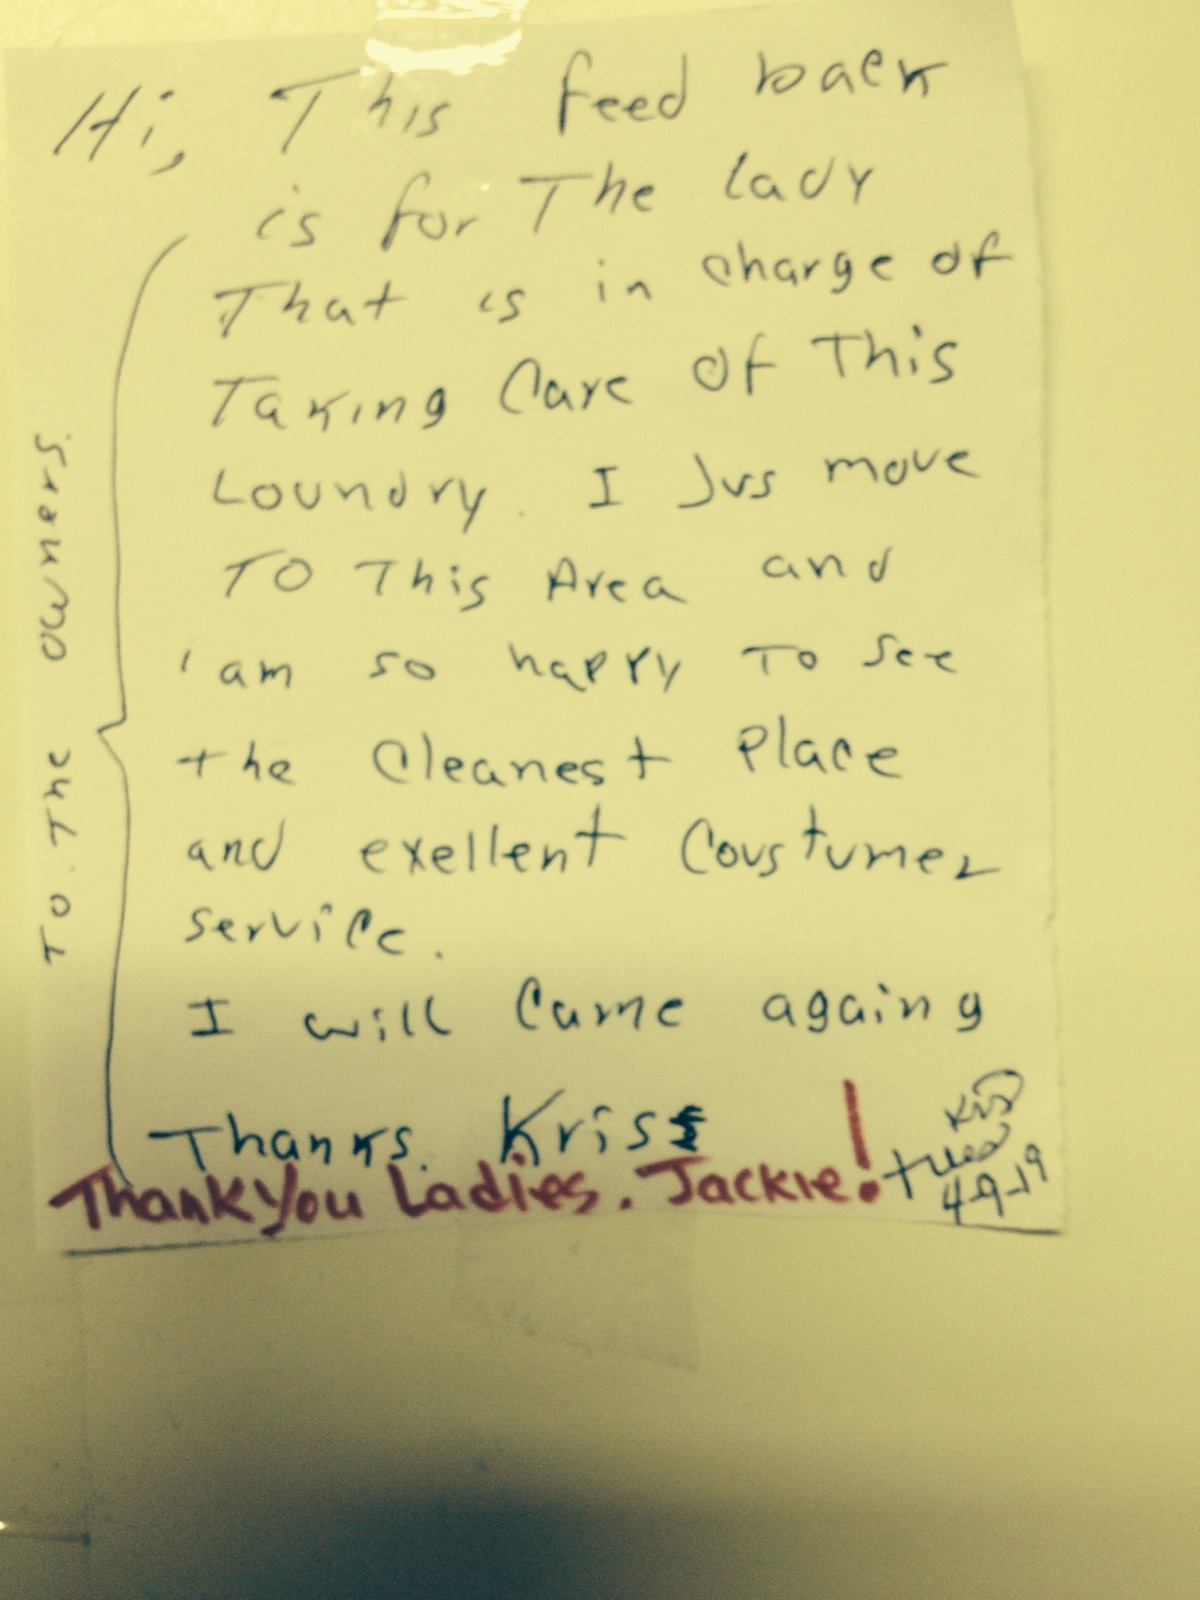 Hi, This feed back
is for The lady
That is in charge of
Taking Care of This
Loundry. I Jus move
To This Area and
I am so happy To see
the Cleanest Place
and exellent Coustumer
service.
I will Came againg
Thanks. Kris
To. The owners.
Thank you Ladies. Jackie!
Kris
4-9-19